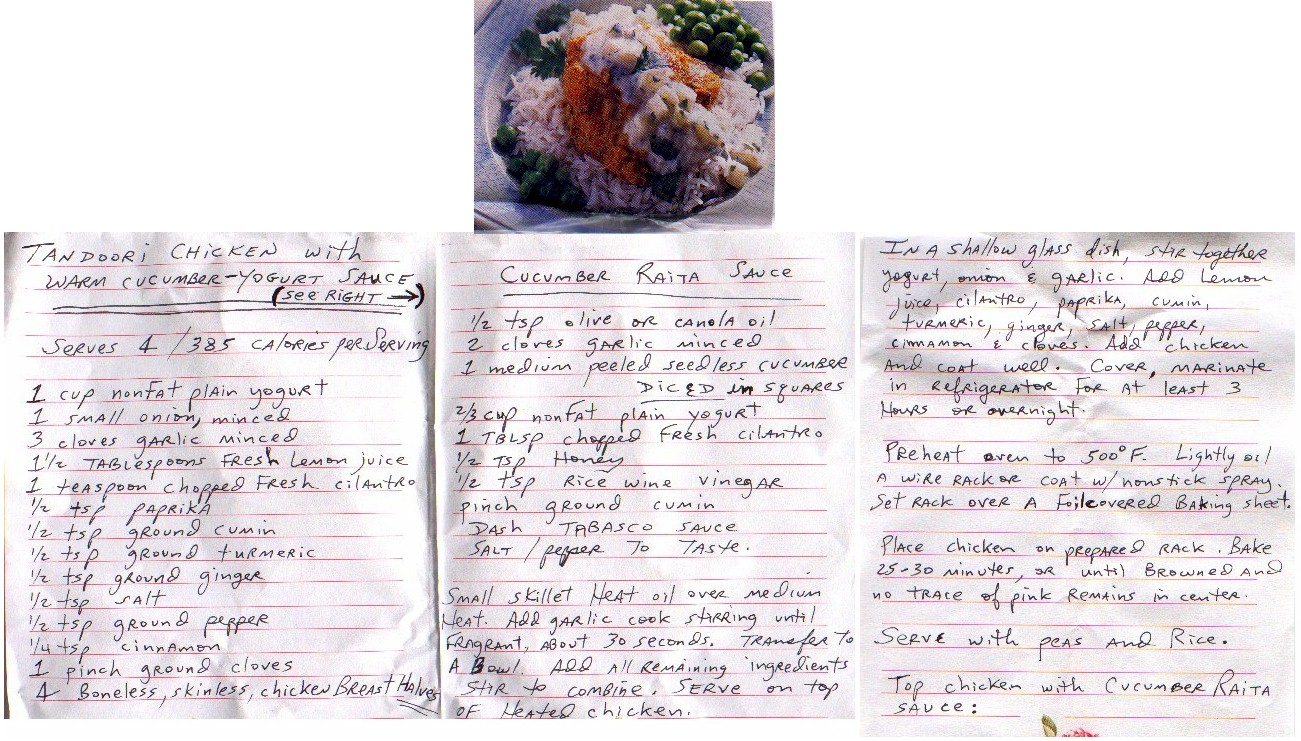 TANDOORI CHICKEN with
WARM CUCUMBER-YOGURT SAUCE
(SEE RIGHT →)
SERVES 4 / 385 CALORIES per Serving
1 cup nonfat plain yogurt
1 small onion, minced
3 cloves garlic minced
1 1/2 TABLespoons Fresh Lemon juice
1 teaspoon chopped Fresh cilantro
1/2 tsp paprika
1/2 tsp ground cumin
1/2 tsp ground turmeric
1/2 tsp ground ginger
1/2 tsp salt
1/2 tsp ground pepper
1/4 tsp cinnamon
1 pinch ground cloves
4 Boneless, skinless, chicken Breast Halves
CUCUMBER RAITA SAUCE
1/2 tsp olive or canola oil
2 cloves garlic minced
1 medium peeled seedless cucumber
DICED in squares
2/3 cup nonfat plain yogurt
1 TBLSP chopped Fresh cilantro
1/2 TSP Honey
1/2 tsp Rice wine vinegar
pinch ground cumin
DASH TABASCO SAUCE
SALT / pepper To Taste.
Small skillet Heat oil over medium
Heat. Add garlic cook stirring until
Fragrant, about 30 seconds. Transfer To
A Bowl. Add All Remaining ingredients
Stir to combine. Serve on top
OF Heated chicken.
In a shallow glass dish, stir together
yogurt, onion & garlic. Add Lemon
juice, cilantro, paprika, cumin,
turmeric, ginger, salt, pepper,
cinnamon & cloves. Add chicken
and coat well. Cover, marinate
in refrigerator for at least 3
Hours or overnight.
Preheat oven to 500°F. Lightly oil
a wire rack or coat w/ nonstick spray.
Set rack over a Foilcovered Baking sheet.
Place chicken on prepared rack. Bake
25-30 minutes, or until Browned and
no trace of pink remains in center.
Serve with peas and Rice.
Top chicken with Cucumber Raita
Sauce: